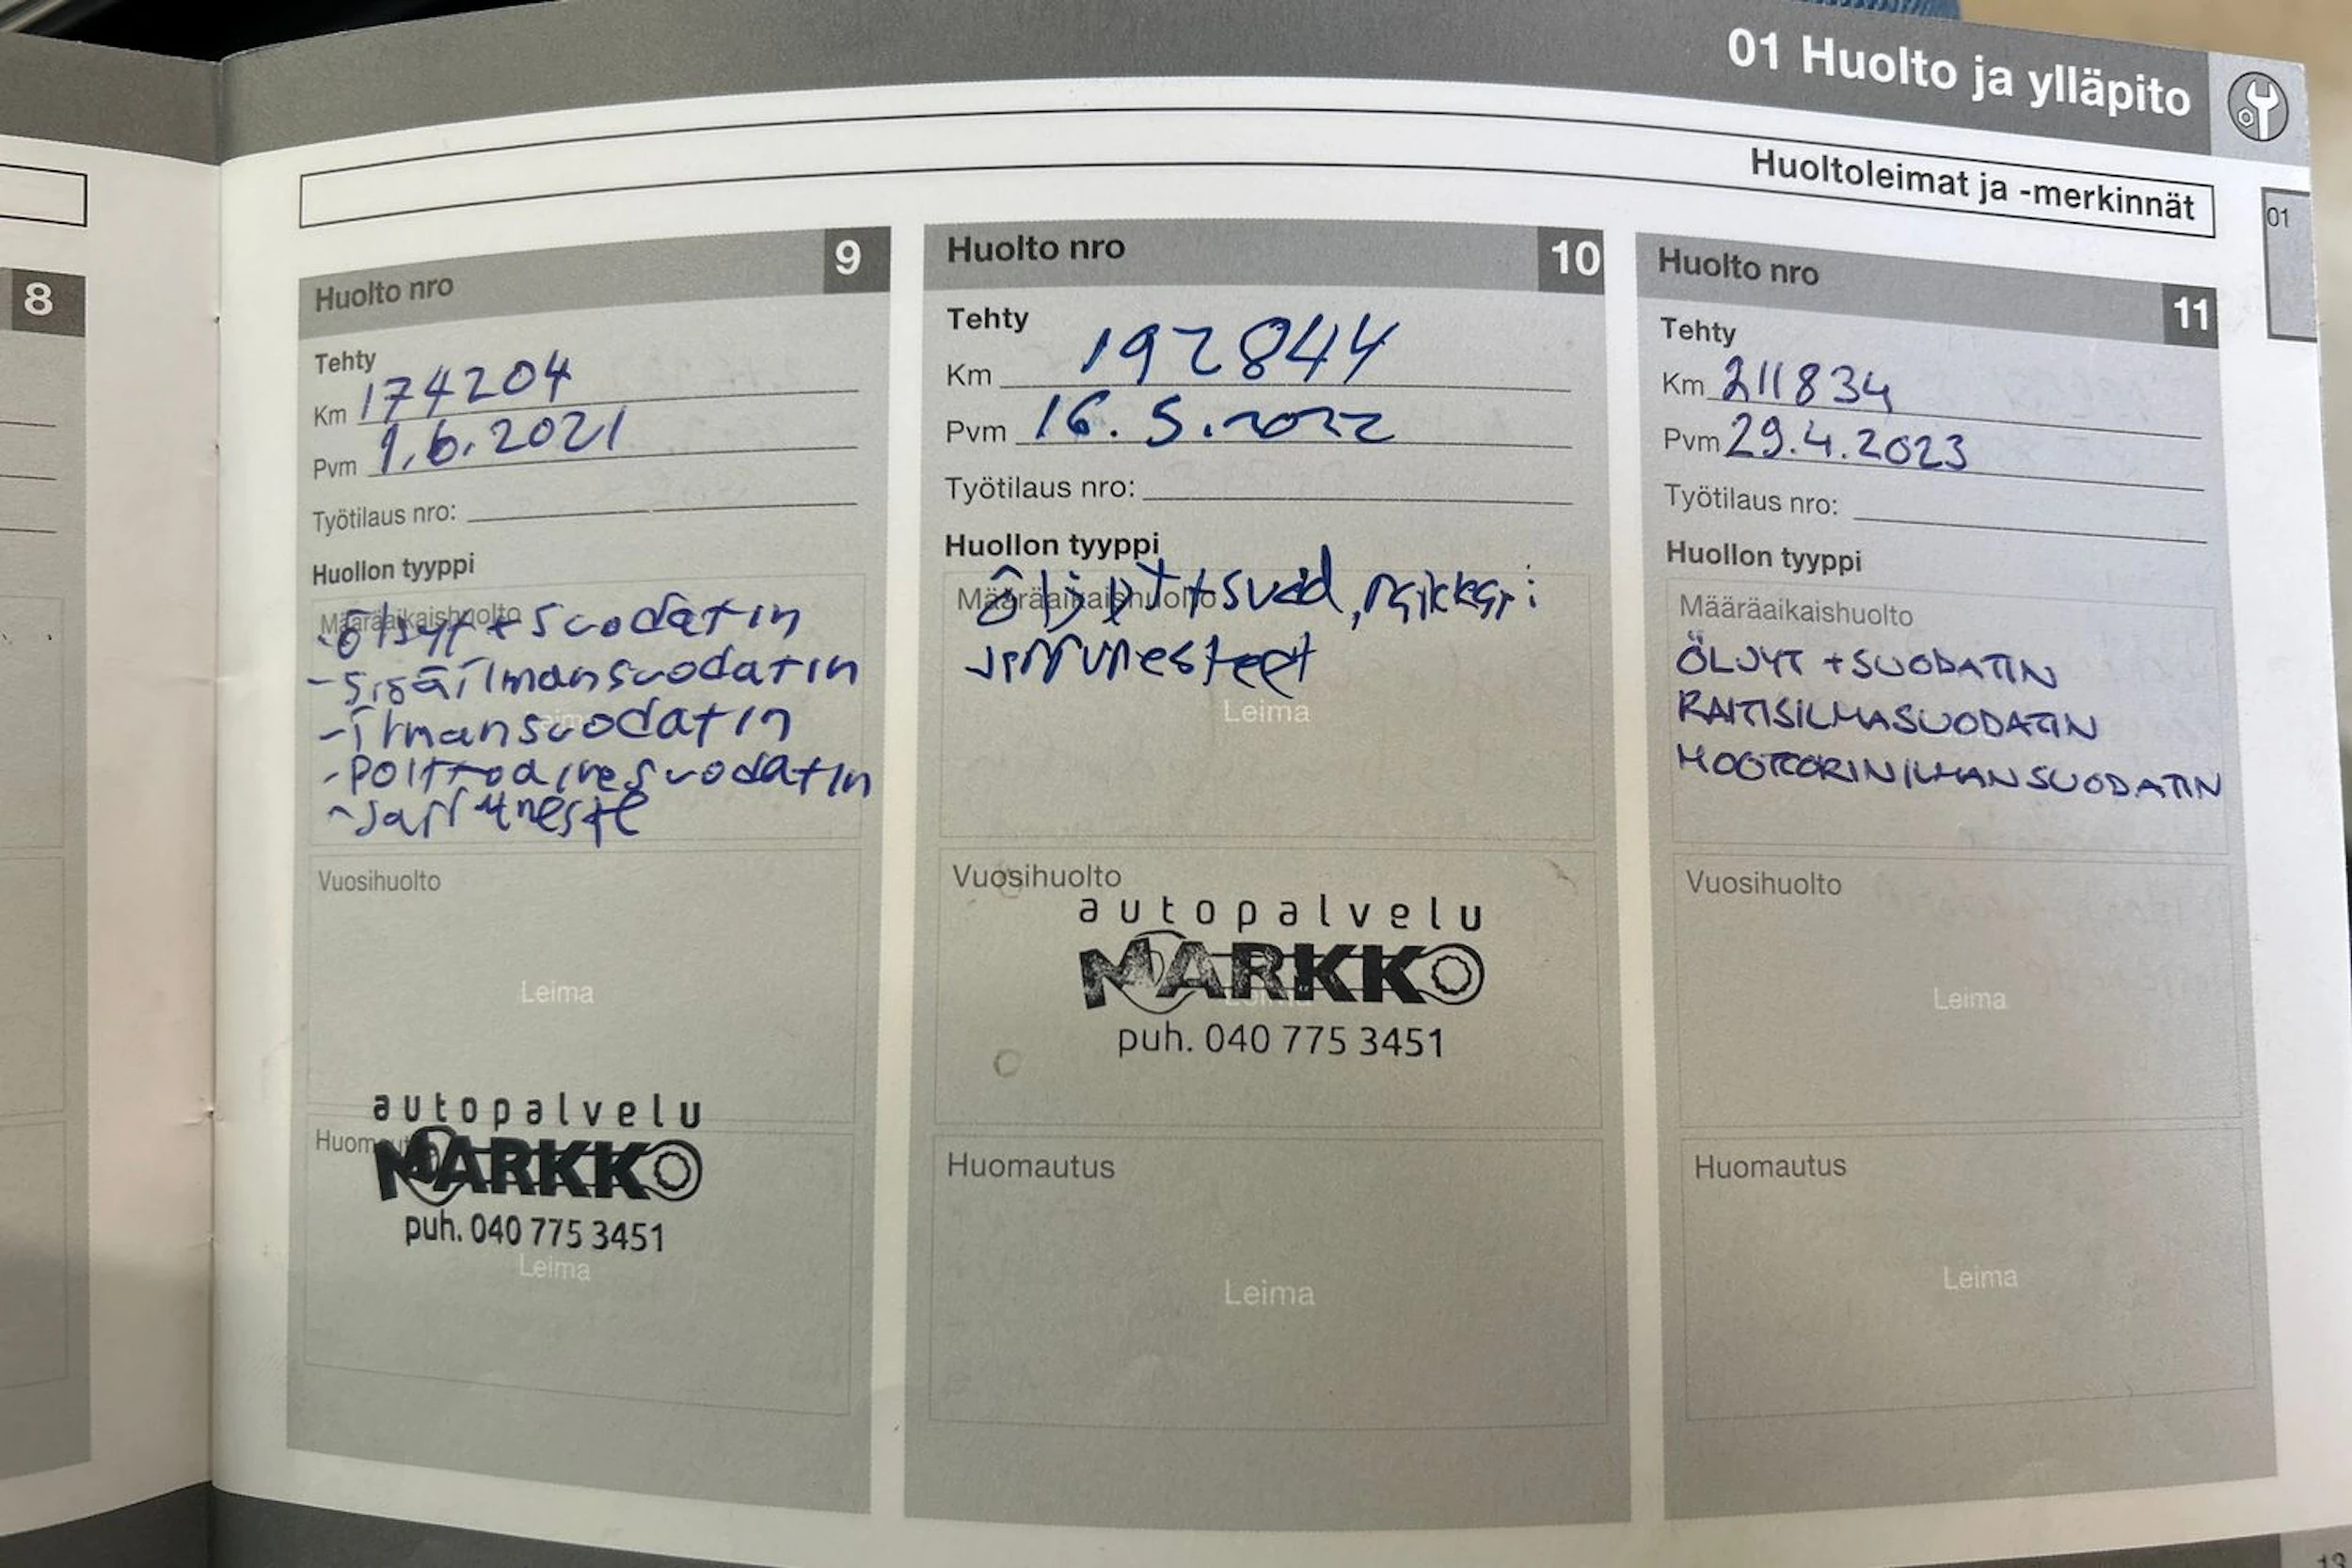 01 Huolto ja ylläpito
Huoltoleimat ja -merkinnät
01
8
Huolto nro 9
Tehty
Km 174204
Pvm 1.6.2021
Työtilaus nro:
Huollon tyyppi
Määräaikaishuolto
- öljyt + suodatin
- sisäilmansuodatin
- ilmansuodatin
- polttoainesuodatin
- jarruneste
Vuosihuolto
Leima
autopalvelu
Huomautus
MARKKO
puh. 040 775 3451
Leima
Huolto nro 10
Tehty
Km 192844
Pvm 16.5.2022
Työtilaus nro:
Huollon tyyppi
Määräaikaishuolto
öljyt + suod,
jarrunesteet
Leima
Vuosihuolto
autopalvelu
MARKKO
Leima
puh. 040 775 3451
Huomautus
Leima
Huolto nro
11
Tehty
Km 211834
Pvm 29.4.2023
Työtilaus nro:
Huollon tyyppi
Määräaikaishuolto
ÖLJYT + SUODATIN
RAITISILMASUODATIN
MOOTTORINILMANSUODATIN
Vuosihuolto
Leima
Huomautus
Leima